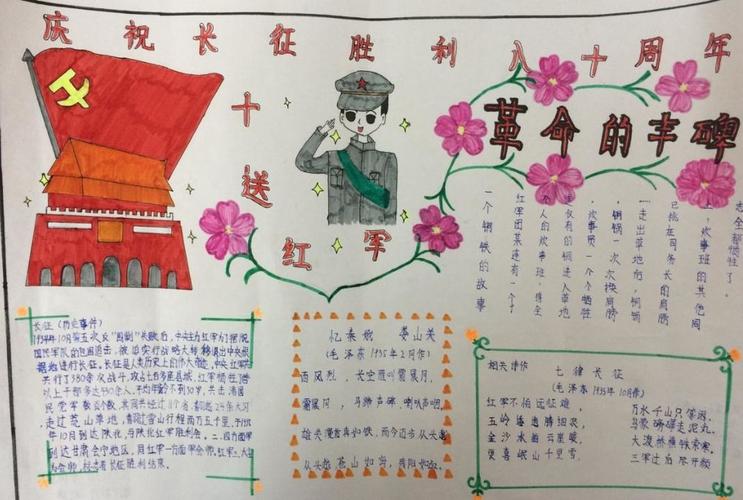 庆祝长征胜利八十周年
十送红军
革命的丰碑
一个钢铁的故事
红军团某连有一个
人的炊事班,
炊事员一个个牺牲
钢锅一次次换肩膀
走出草地后,铜锅
已挑在司务长的肩膀
上,炊事班的其他同
志全都牺牲了。
长征(历史事件)
1934年10月第五次反"围剿"失败后,中央主力红军为了摆脱
国民军队的包围追击,被迫实行战略大转移退出中央根
据地进行长征。长征是人类历史上的伟大奇迹,中央红军共
进行了380余次战斗,攻占七百多座县城,红军牺牲了营
以上干部多达430余人。平均年龄不到30岁,共击溃国
民党军数百个团,其间共经过11个省,翻越
走过荒草地,翻过雪山行程两万五千里,1935
年10月到达陕北,与陕北红军胜利会
到达甘肃会宁地区,同红军一方面军会师。红军三大
为会师,标志着长征胜利结束。
忆秦娥 娄山关
(毛泽东1935年2月作)
西风烈,长空雁叫霜晨月,
霜晨月,马蹄声碎,喇叭声咽。
雄关漫道真如铁,而今迈步从头越
从头越,苍山如海,残阳如血。
相关诗作
七律长征
(毛泽东1935年10月)
红军不怕远征难,
万水千山只等闲。
五岭逶迤腾细浪,
乌蒙磅礴走泥丸。
金沙水拍云崖暖,
大渡桥横铁索寒。
更喜岷山千里雪,
三军过后尽开颜